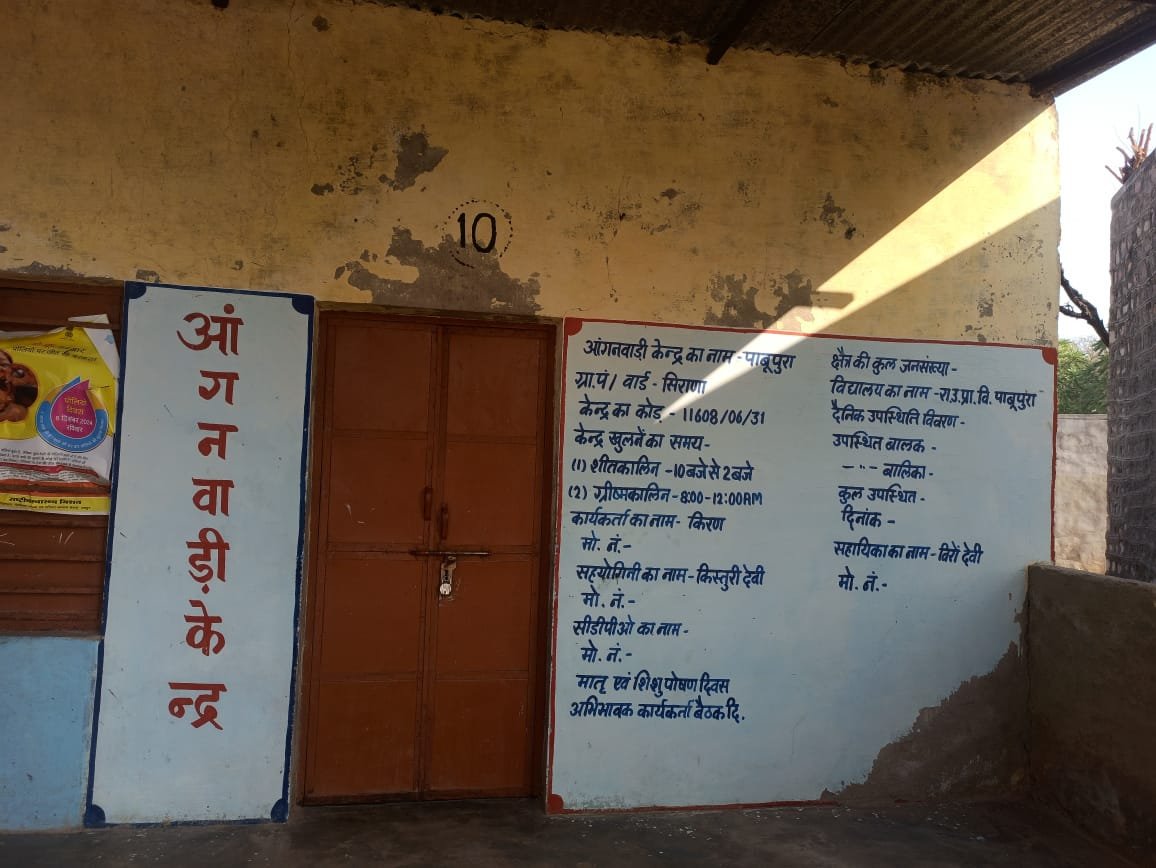 10
आंगनवाड़ी केन्द्र
पोलियो
दिवस
8 दिसम्बर 2024
रविवार
आंगनवाडी केन्द्र का नाम - पाबूपुरा
ग्रा.पं / वार्ड - सिराणा
केन्द्र का कोड़ - 11608/06/31
केन्द्र खुलनें का समय -
(1) शीतकालिन - 10 बजे से 2 बजे
(2) ग्रीष्मकालिन - 8:00 - 12:00 AM
कार्यकर्ता का नाम - किरण
मो. नं. -
सहयोगिनी का नाम - किस्तुरी देवी
मो. नं. -
सीडीपीओ का नाम -
मो. नं. -
मातृ एवं शिशु पोषण दिवस
अभिभावक कार्यकर्ता बैठक दि.
क्षैत्र की कुल जनसंख्या -
विद्यालय का नाम - रा.उ.प्रा.वि. पाबूपुरा
दैनिक उपस्थिति विवरण -
उपस्थित बालक -
—"— बालिका -
कुल उपस्थित -
दिनांक -
सहायिका का नाम - विरों देवी
मो. नं. -